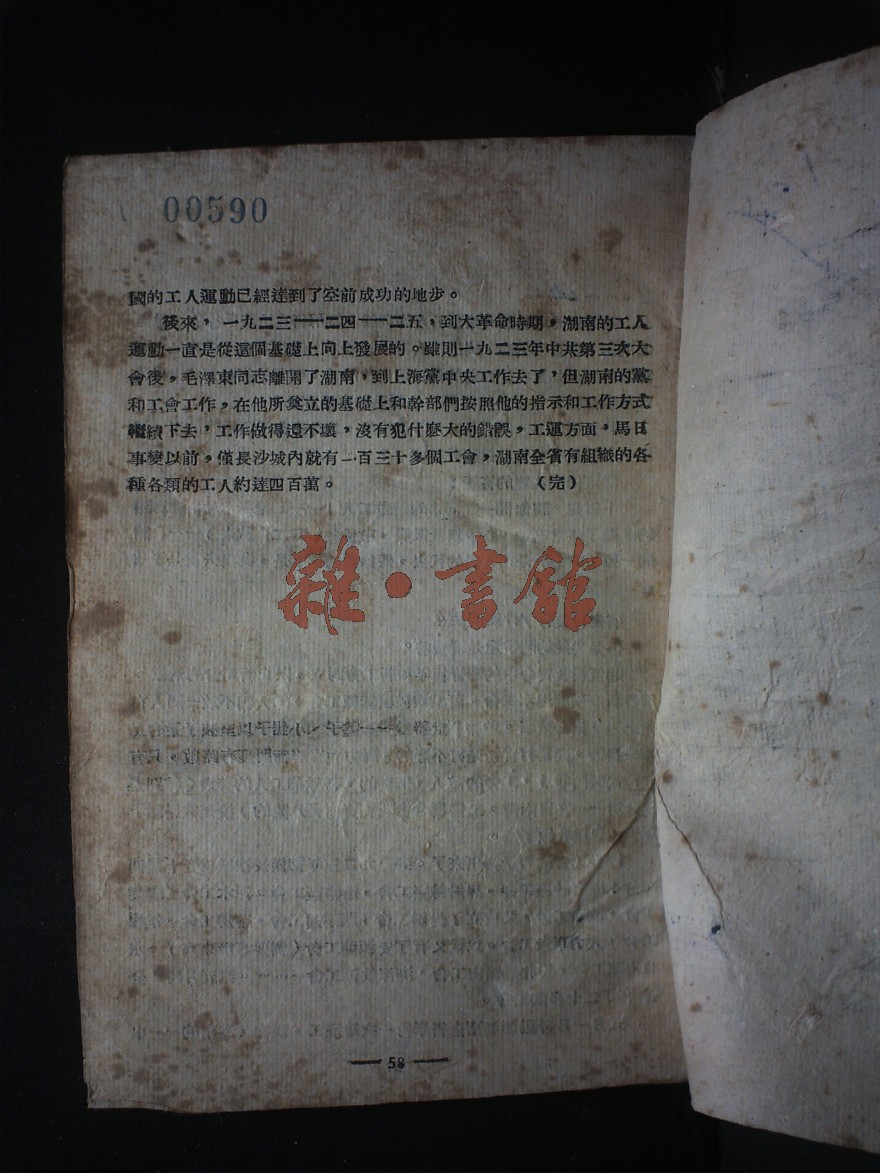 00590
國的工人運動已經達到了空前成功的地步。
後來，一九二三——二四——二五，到大革命時期，湖南的工人
運動一直是從這個基礎上向上發展的。雖則一九二三年中共第三次大
會後，毛澤東同志離開了湖南，到上海黨中央工作去了，但湖南的黨
和工會工作，在他所奠立的基礎上和幹部們按照他的指示和工作方式
繼續下去，工作做得還不壞，沒有犯什麽大的錯誤。工運方面，馬日
事變以前，僅長沙城內就有一百三十多個工會，湖南全省有組織的各
種各類的工人約達四百萬。（完）
雜·書館
— 58 —